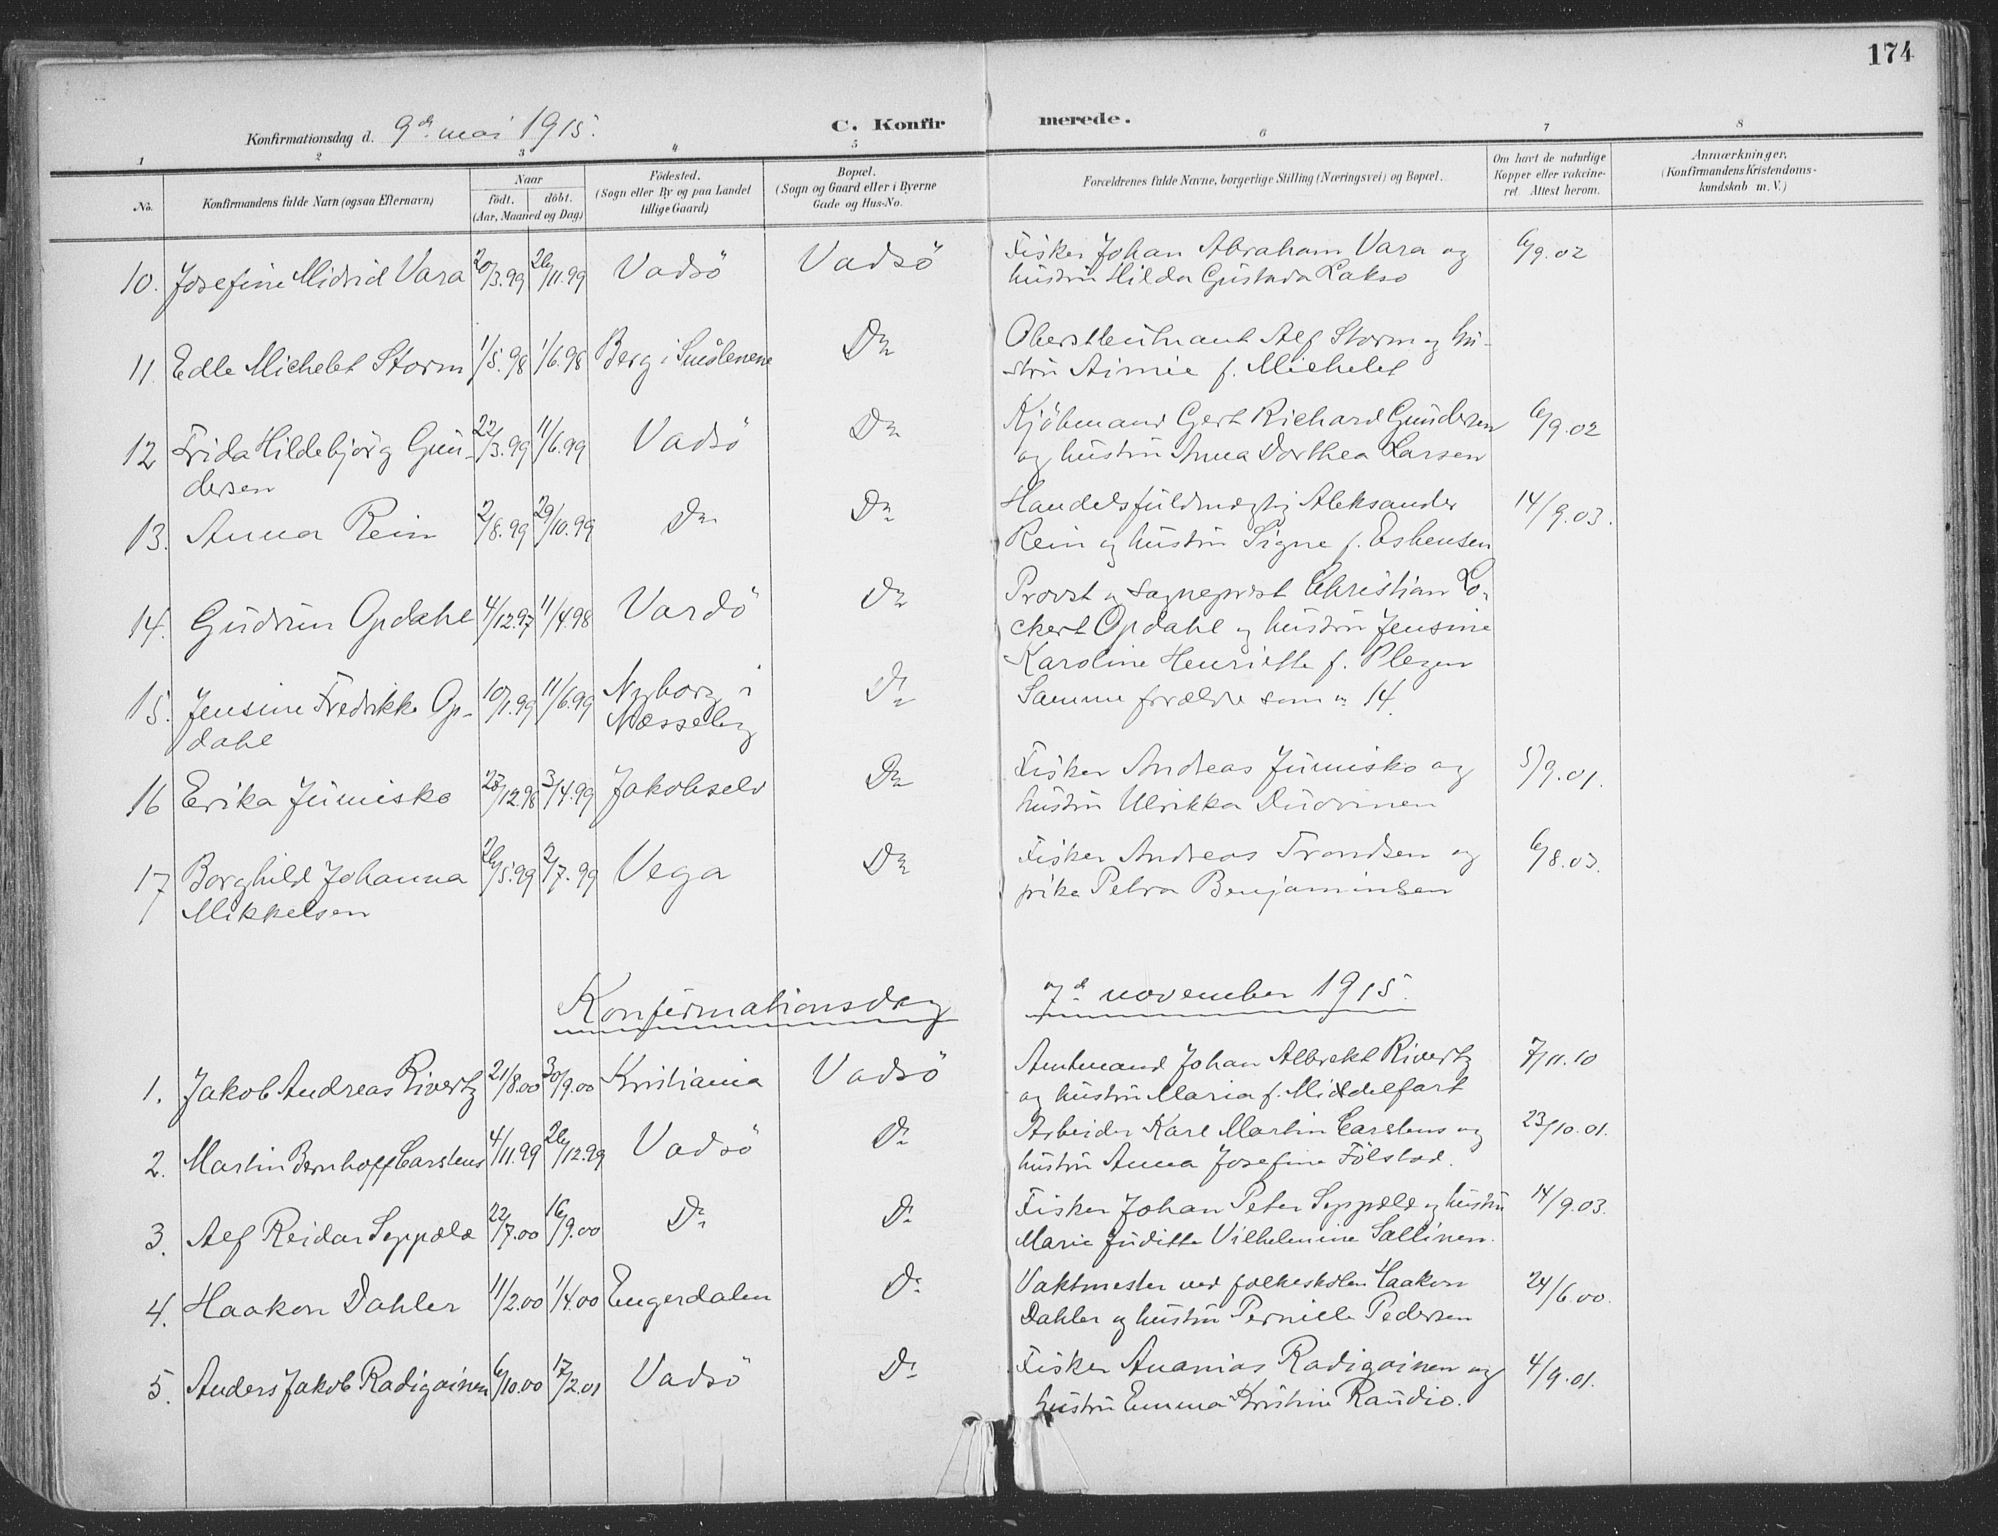 174
Konfirmationsdag d. 9de mai 1915.
C. Konfirmerede.
1 2 3 4 5 6 7 8
No.
Konfirmandens fulde Navn (ogsaa Efternavn)
Naar
født. døbt.
(Aar, Maaned og Dag)
Fødested.
(Sogn eller By og paa Landet
tillige Gaard)
Bopæl.
(Sogn og Gaard eller i Byerne
Gade og Hus-No.
Forældrenes fulde Navne, borgerlige Stilling (Næringsvei) og Bopæl.
Om havt de naturlige
Kopper eller vakcine-
ret. Attest herom.
Anmærkninger.
(Konfirmandens Kristendoms-
kundskab m. V.)
10. Josefine Midrid Vara 20/3.99 26/11.99 Vadsö Vadsö Fisker Johan Abraham Vara og 6/9.02
hustru Hilda Gustada Lakso
11. Edle Michelet Storm 1/5.98 1/6.98 Berg i Smålenene Do Oberstleutnant Alf Storm og hu-
stru Aimée f. Michelet
12 Frida Hildebjörg Gun- 22/3.99 11/6.99 Vadsö Do Kjöbmand Gert Richard Gundersen 6/9.02
dersen og hustru Anna Dorthea Larsen
13. Anna Rein 2/8.99 29/10.99 Do Do Handelsfuldmægtig Aleksander 14/9.03.
Rein og hustru Signe f. Esbensen
14. Gudrun Opdahl 4/12.97 11/4.98 Vardö Do Provst og sogneprest Christian Lo-
ckert Opdahl og hustru Jensine
Karoline Henriette f. Plezen
15. Jensine Fredrikke Op- 10/1.99 11/6.99 Nyborg i Do Samme forældre som n 14.
dahl Næsseby
16 Erika Jumisko 28/12.98 3/4.99 Jakobselv Do Fisker Andreas Jumisko og 5/9.01.
hustru Ulrikka Duovinen
17 Borghild Johanna 26/5.99 2/7.99 Vega Do Fisker Andreas Trondsen og 6/8.03.
Mikkelsen pike Petra Benjaminsen
Konfirmationsdag 7de november 1915.
1. Jakob Andreas Rivertz 21/8.00 30/9.00 Kristiania Vadsö Amtmand Johan Albrekt Rivertz 7/11.10
og hustru Maria f. Middelfart
2. Martin Bernhoff Carstens 4/11.99 26/12.99 Vadsö Do Arbeider Karl Martin Carstens og 23/10.01.
hustru Anna Josefine Fölstad.
3. Alf Reidar Seppälä 22/7.00 16/9.00 Do Do Fisker Johan Peter Seppälä og hustru 14/9.03.
Marie Juditte Vilhelmine Sallinen.
4. Haakon Dahler 11/2.00 1/4.00 Engerdalen Do Vaktmester ved folkeskolen Haakon 24/6.00.
Dahler og hustru Pernille Pedersen
5. Anders Jakob Radigoinen 6/10.00 17/2.01 Vadsö Do Fisker Ananias Radigoinen og 4/9.01.
hustru Emma Kristine Raudio.